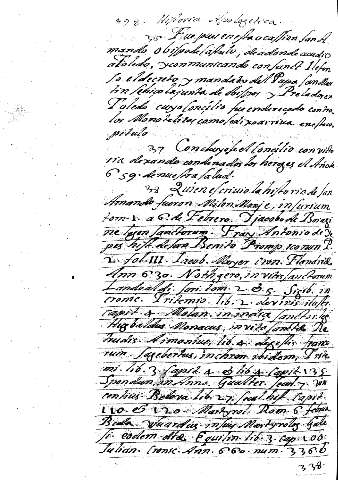 498. Historia Apologetica.
36 Fue pues en esta ocassion san A
mando obispo de
a Toledo, y comunicando con sanct Ilefon
so el decreto y mandato del Papa san Mar
tin se hizo la junta de obispos y Prelados en
Toledo cuyo concilio fue enderecado contra
los Monotelitas como se dixo arriva en este ca
pitulo
37 Concluyose el concilio con vito
ria dexando condenados los hereges el Año de
659 de nuestra salud.
38 Quien escrivio la historia de san
Amando fueron Milon Monje, in surium
tom. 1. a 6 de Febrero. Jacobo de Boragi
ne sanctorum. Fray Antonio de Ye
pes hist. de san Benito
2. fol. 111. Jacob. Meyer cron. Flandriæ
Ann 630. Notgero, in vita sanctorum
Landoaldi. tom. 2 Sigib. in
cronic. Tritemio. lib. 2 de viris ilust.
capit. 4. Molan. in
Hugbaldus Monacus, in vita sanctæ Re
trudis. Aimonius, lib. 4 de gestis franco
rum. Sigebertus, in chron. ibidem, Trite
mi. lib. 3. capit. 4. & lib. 4. capit. 135
Spondan, in Anno. Gualter. secul. 7. Vin
centius Belova. lib. 27. hist. capit.
110. & 120. Martyrol. Rom. 6 febru.
Beda. Usuardus, in suis Martyrolog.
eodem die. Equilin. lib. 3. cap. 100
Julian. Cronic. Ann. 660. num. 336.
338.